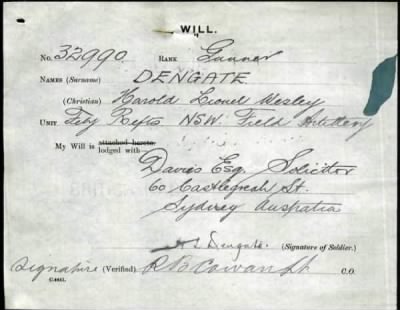 WILL.
No. 32990 RANK Gunner
NAMES (Surname) DENGATE.
(Christian) Harold Lionel Wesley
UNIT Feby Refts NSW. Field Artillery
My Will is attached hereto.
lodged with
Davies Esq. Solicitor
60 Castlereagh St.
Sydney Australia
H L Dengate. (Signature of Soldier.)
Signature (Verified) R B Cowan Lt C.O.